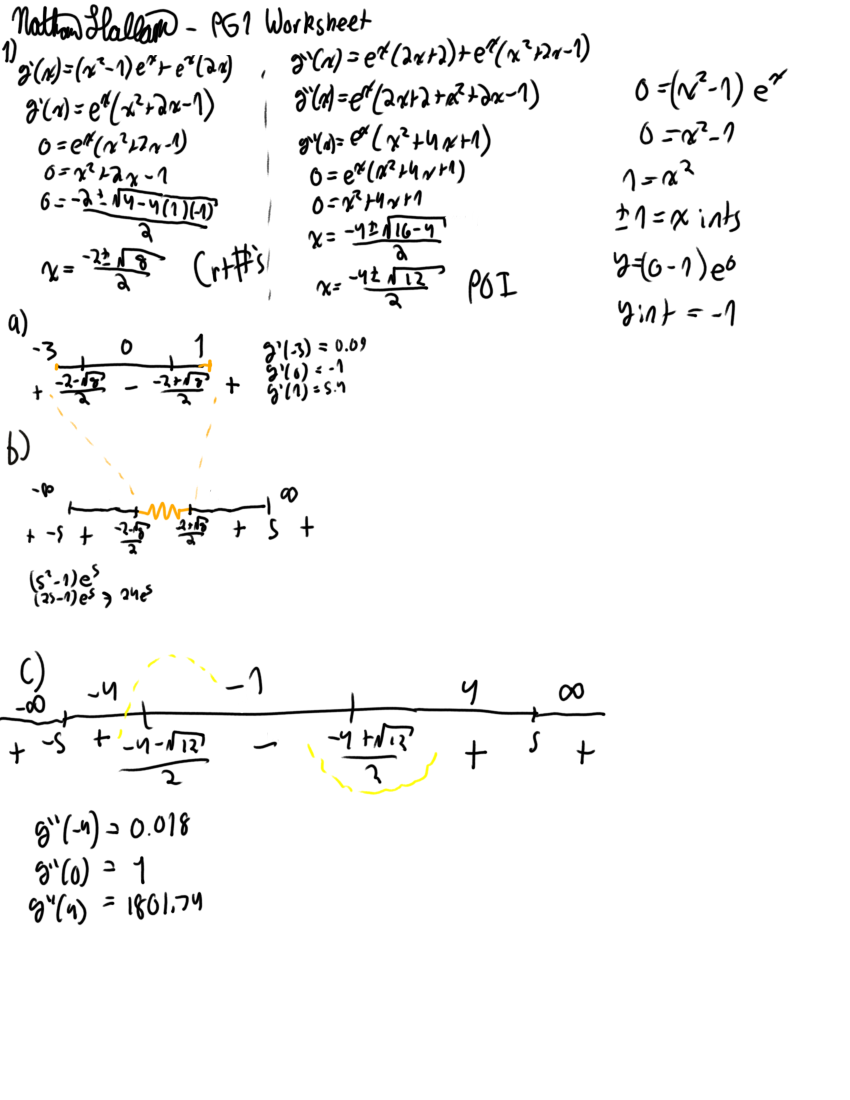 Nathan Hallam - PG1 Worksheet
1)
g'(x) = (x²-1)eˣ + eˣ(2x)
g'(x) = eˣ(x²+2x-1)
0 = eˣ(x²+2x-1)
0 = x²+2x-1
0 = (-2±√(4-4(1)(-1)))/2
x = (-2±√8)/2 Crt#'s
g''(x) = eˣ(2x+2)+eˣ(x²+2x-1)
g''(x) = eˣ(2x+2+x²+2x-1)
g''(x) = eˣ(x²+4x+1)
0 = eˣ(x²+4x+1)
0 = x²+4x+1
x = (-4±√(16-4))/2
x = (-4±√12)/2 POI
0 = (x²-1)eˣ
0 = x²-1
1 = x²
±1 = x ints
y = (0-1)e⁰
y int = -1
a)
-3 0 1
+ (-2-√8)/2 - (-2+√8)/2 +
g'(-3) = 0.09
g'(0) = -1
g'(1) = 5.4
b)
-∞ ∞
+ -5 + (-2-√8)/2 (-2+√8)/2 + 5 +
(5²-1)e⁵
(25-1)e⁵ → 24e⁵
c)
-∞ -4 -1 4 ∞
+ -5 + (-4-√12)/2 - (-4+√12)/2 + 5 +
g''(-4) = 0.018
g''(0) = 1
g''(4) = 1801.74